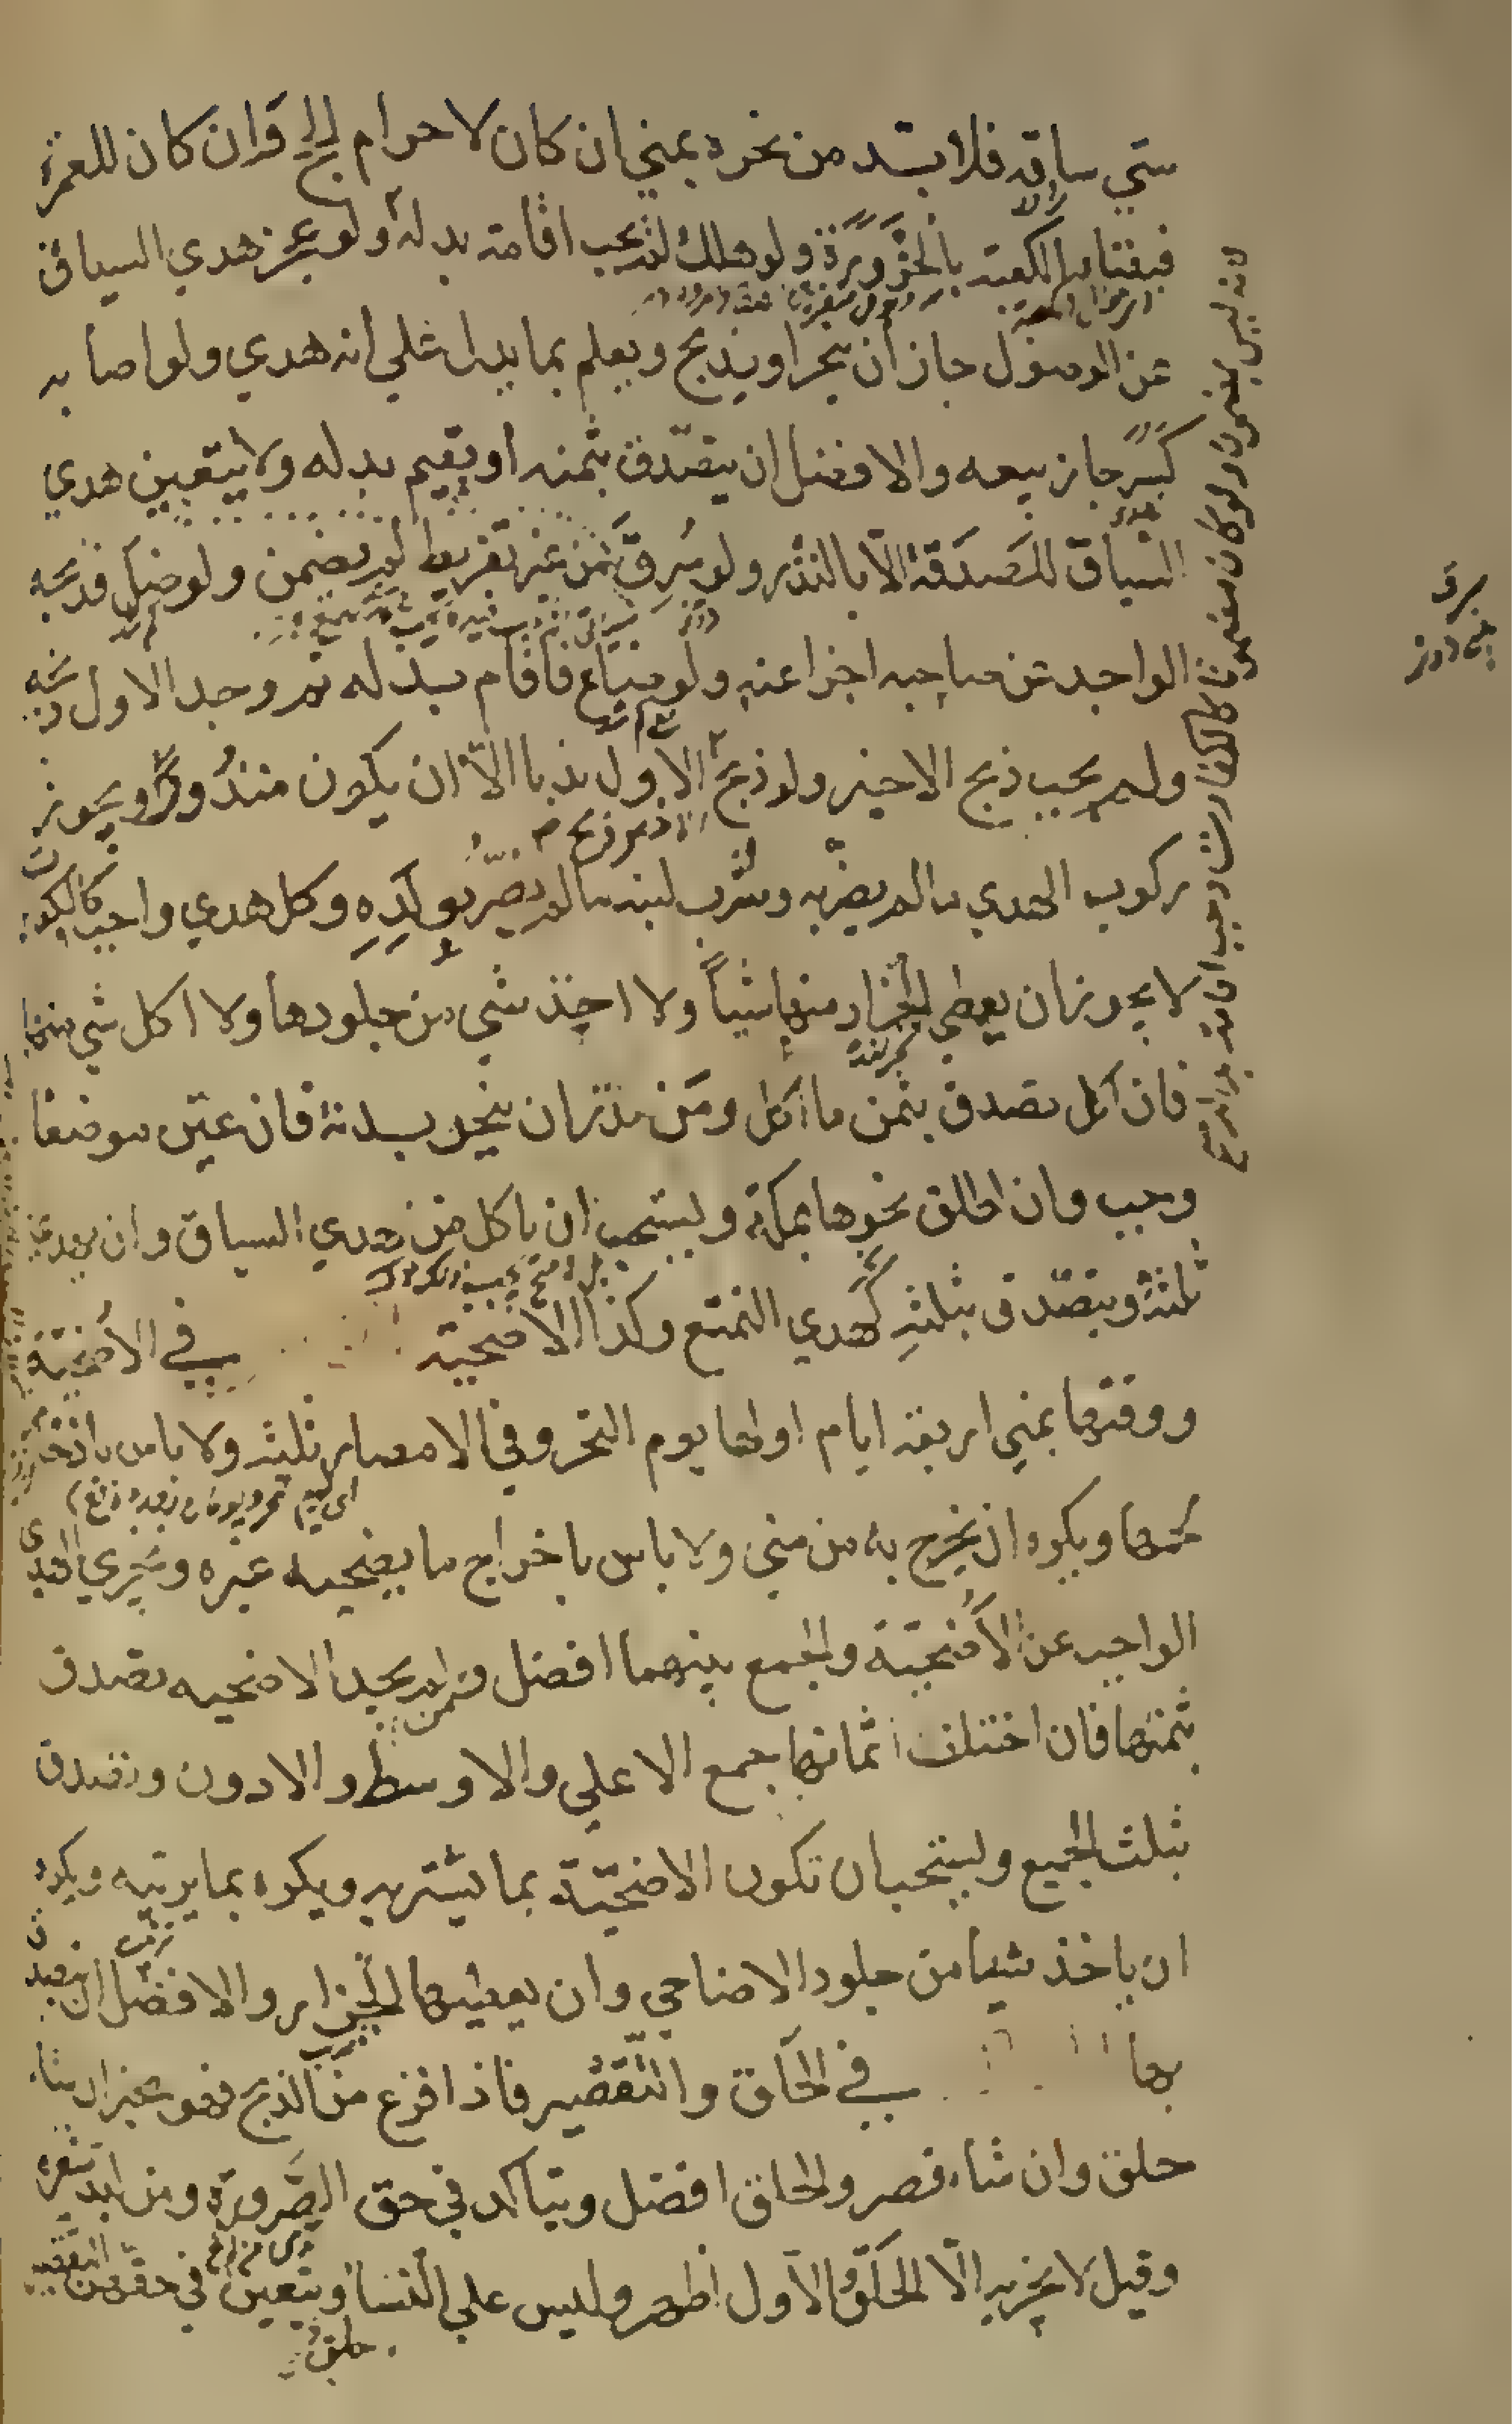 متي ساقه فلا بد من نحره بمني ان كان لاحرام الحج وان كان للعمرة
فبفناء الكعبة بالحزورة ولو هلك لم يجب اقامة بدله ولو عجز هدي السياق
عن الوصول جاز ان ينحر او يذبح ويعلم بما يدل علي انه هدي ولو اصابه
كسر جاز بيعه والافضل ان يتصدق بثمنه او يقيم بدله ولا يتعين هدي
السياق للصدقة الا بالنذر ولو سرق من غير تفريط لم يضمن ولو ضل فذبحه
الواجد عن صاحبه اجزا عنه ولو ضاع فاقام بدله ثم وجد الاول ذبحه
ولم يجب ذبح الاخير ولو ذبح الاخير ذبح الاول ندبا الا ان يكون منذورا ويجوز
ركوب الهدي ما لم يضر به وشرب لبنه ما لم يضر بولده وكل هدي واجب كالكفارات
لا يجوز ان يعطي الجزار منها شيأ ولا اخذ شي من جلودها ولا اكل شي منها
فان اكل تصدق بثمن ما اكل ومن نذر ان ينحر بدنة فان عين موضعا
وجب وان اطلق نحرها بمكة ويستحب ان ياكل من هدي السياق وان يهدي
ثلثه ويتصدق بثلثه كهدي التمتع وكذا الاضحية في الاضحية
ووقتها بمني اربعة ايام اولها يوم النحر وفي الامصار ثلثة ولا باس بادخار
لحمها ويكره ان يخرج به من مني ولا باس باخراج ما يضحيه غيره ويجزي الهدي
الواجب عن الاضحية والجمع بينهما افضل ومن لم يجد الاضحيه تصدق
بثمنها فان اختلف اثمانها جمع الاعلي والاوسط والادون وتصدق
بثلث الجميع ويستحب ان تكون الاضحية بما يشتريه ويكره بما يربيه ويكره
ان ياخذ شيا من جلود الاضاحي وان يعطيها الجزار والافضل ان يتصدق
بها في الحلق والتقصير فاذا فرغ من الذبح فهو مخير ان شاء
حلق وان شاء قصر والحلق افضل ويتاكد في حق الصرورة ومن لبد شعره
وقيل لا يجزيه الا الحلق والاول اظهر وليس علي النسا حلق ويتعين في حقهن التقصير
لانه ليس بمضمون ولو كان مضمونا كالكفارات وجب اقامة بدله